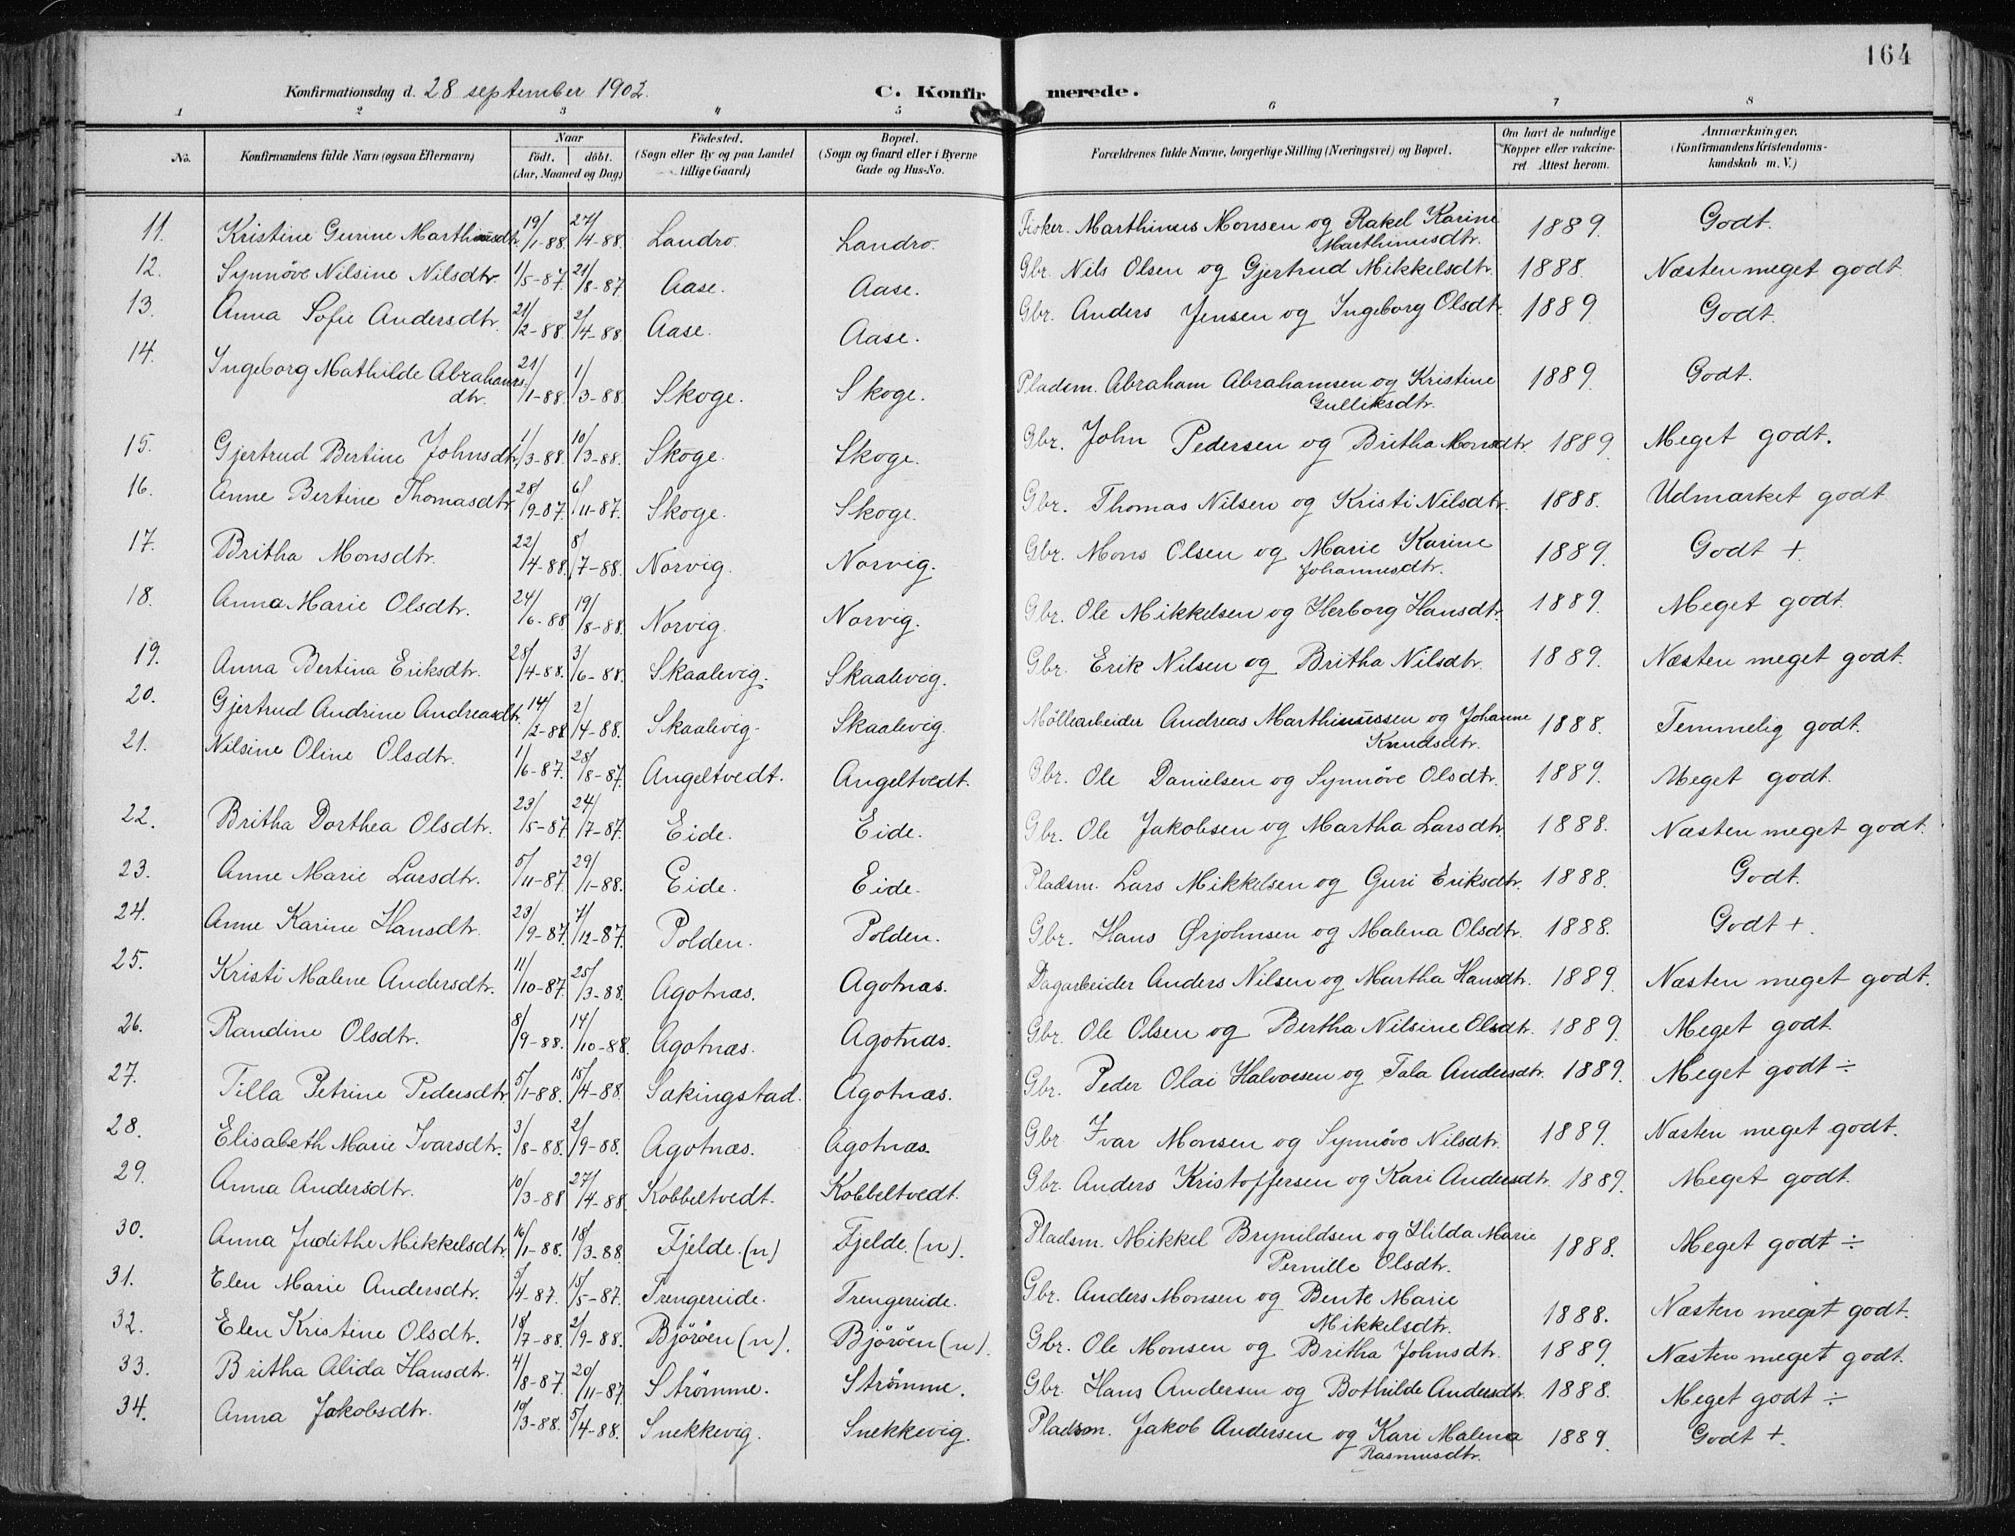 164
Konfirmationsdag d. 28 september 1902. C. Konfirmerede.
1 2 3 4 5 6 7 8
No. Konfirmandens fulde Navn (ogsaa Efternavn) Naar født. døbt. (Aar, Maaned og Dag) Fødested. (Sogn eller By og paa Landet tillige Gaard) Bopæl. (Sogn og Gaard eller i Byerne Gade og Hus-No. Forældrenes fulde Navne, borgerlige Stilling (Næringsvei) og Bopæl. Om havt de naturlige Kopper eller vaccineret Attest herom. Anmærkninger, (Konfirmandens Kristendomskundskab m. V.)
11. Kristine Gurine Marthinusdtr. 19/1-88. 27/4-88. Landro. Landro. Fisker. Marthinus Monsen og Rakel Karine Marthinusdtr. 1889. Godt.
12. Synnöve Nilsine Nilsdtr. 1/5-87. 21/8-87. Aase. Aase. Gbr. Nils Olsen og Gjertrud Mikkelsdtr. 1888. Næsten meget godt.
13. Anna Sofie Andersdtr. 21/2-88. 2/4-88. Aase. Aase. Gbr. Anders Jensen og Ingeborg Olsdtr. 1889. Godt.
14. Ingeborg Mathilde Abrahamsdtr. 21/1-88. 1/3-88. Skoge. Skoge. Pladsm. Abraham Abrahamsen og Kristine Gulliksdtr. 1889. Godt.
15. Gjertrud Bertine Johnsdtr. 1/3-88. 10/3-88. Skoge. Skoge. Gbr. John Pedersen og Britha Monsdtr. 1889. Meget godt.
16. Anne Bertine Thomasdtr. 28/9-87. 6/11-87. Skoge. Skoge. Gbr. Thomas Nilsen og Kristi Nilsdtr. 1888. Udmærket godt
17. Britha Monsdtr. 22/4-88. 8/7-88. Norvig. Norvig. Gbr. Mons Olsen og Marie Karine Johannesdtr. 1889. Godt +
18. Anna Marie Olsdtr. 24/6-88. 19/8-88. Norvig. Norvig. Gbr. Ole Mikkelsen og Herborg Hansdtr. 1889. Meget godt.
19. Anna Bertina Eriksdtr. 28/4-88. 3/6-88. Skaalevig. Skaalevig. Gbr. Erik Nilsen og Britha Nilsdtr. 1889. Næsten meget godt.
20. Gjertrud Andrine Andreasdtr. 14/2-88. 2/4-88. Skaalevig. Skaalevig. Möllearbeider Andreas Marthinussen og Johanne Knudsdtr. 1888. Temmelig godt.
21. Nilsine Oline Olsdtr. 1/6-87. 28/8-87. Angeltvedt. Angeltvedt. Gbr. Ole Danielsen og Synnöve Olsdtr. 1889. Meget godt.
22. Britha Dorthea Olsdtr. 23/5-87. 24/7-87. Eide. Eide. Gbr. Ole Jakobsen og Martha Larsdtr. 1888. Næsten meget godt.
23. Anne Marie Larsdtr. 5/11-87. 29/1-88. Eide. Eide. Pladsm. Lars Mikkelsen og Guri Eriksdtr. 1888. Godt.
24. Anne Karine Hansdtr. 23/9-87. 7/12-87. Polden. Polden. Gbr. Hans Ørjohnsen og Malena Olsdtr. 1888. Godt +.
25. Kristi Malene Andersdtr. 11/10-87. 25/3-88. Agotnæs. Agotnæs. Dagarbeider Anders Nilsen og Martha Hansdtr. 1889. Næsten meget godt.
26. Randine Olsdtr. 8/9-88. 14/10-88. Agotnæs. Agotnæs. Gbr. Ole Olsen og Bertha Nilsine Olsdtr. 1889. Meget godt.
27. Tilla Petrine Pedersdtr. 5/1-88. 15/4-88. Sækingstad. Agotnæs. Gbr. Peder Olai Halvorsen og Tala Andersdtr. 1889. Meget godt ÷
28. Elisabeth Marie Ivarsdtr. 3/8-88. 2/9-88. Agotnæs. Agotnæs. Gbr Ivar Monsen og Synnöve Nilsdtr. 1889. Næsten meget godt.
29. Anna Andersdtr. 10/3-88 27/4-88. Kobbeltvedt. Kobbeltvedt. Gbr. Anders Kristoffersen og Kari Andersdtr. 1889. Meget godt.
30. Anna Judithe Mikkelsdtr. 16/1-88. 18/3-88. Fjelde. (n) Fjelde. (n). Pladsm. Mikkel Brynildsen og Hilda Marie Pernille Olsdtr. 1888. Meget godt ÷
31. Elen Marie Andersdtr. 5/4-87. 15/5-87. Trengereide. Trengereide. Gbr. Anders Monsen og Bente Marie Mikkelsdtr. 1888. Næsten meget godt.
32. Elen Kristine Olsdtr. 18/7-88. 2/9-88. Björöen (n). Björöen (n). Gbr. Ole Monsen og Britha Johnsdtr. 1889. Næsten meget godt.
33. Britha Alida Hansdtr. 4/8-87. 20/11-87. Strömme. Strömme. Gbr. Hans Andersen og Bothilde Andersdtr. 1888. Meget godt ÷
34. Anna Jakobsdtr. 10/3-88. 5/4-88. Snekkevig. Snekkevig. Pladsm. Jakob Andersen og Kari Malena Rasmusdtr. 1889. Godt +.